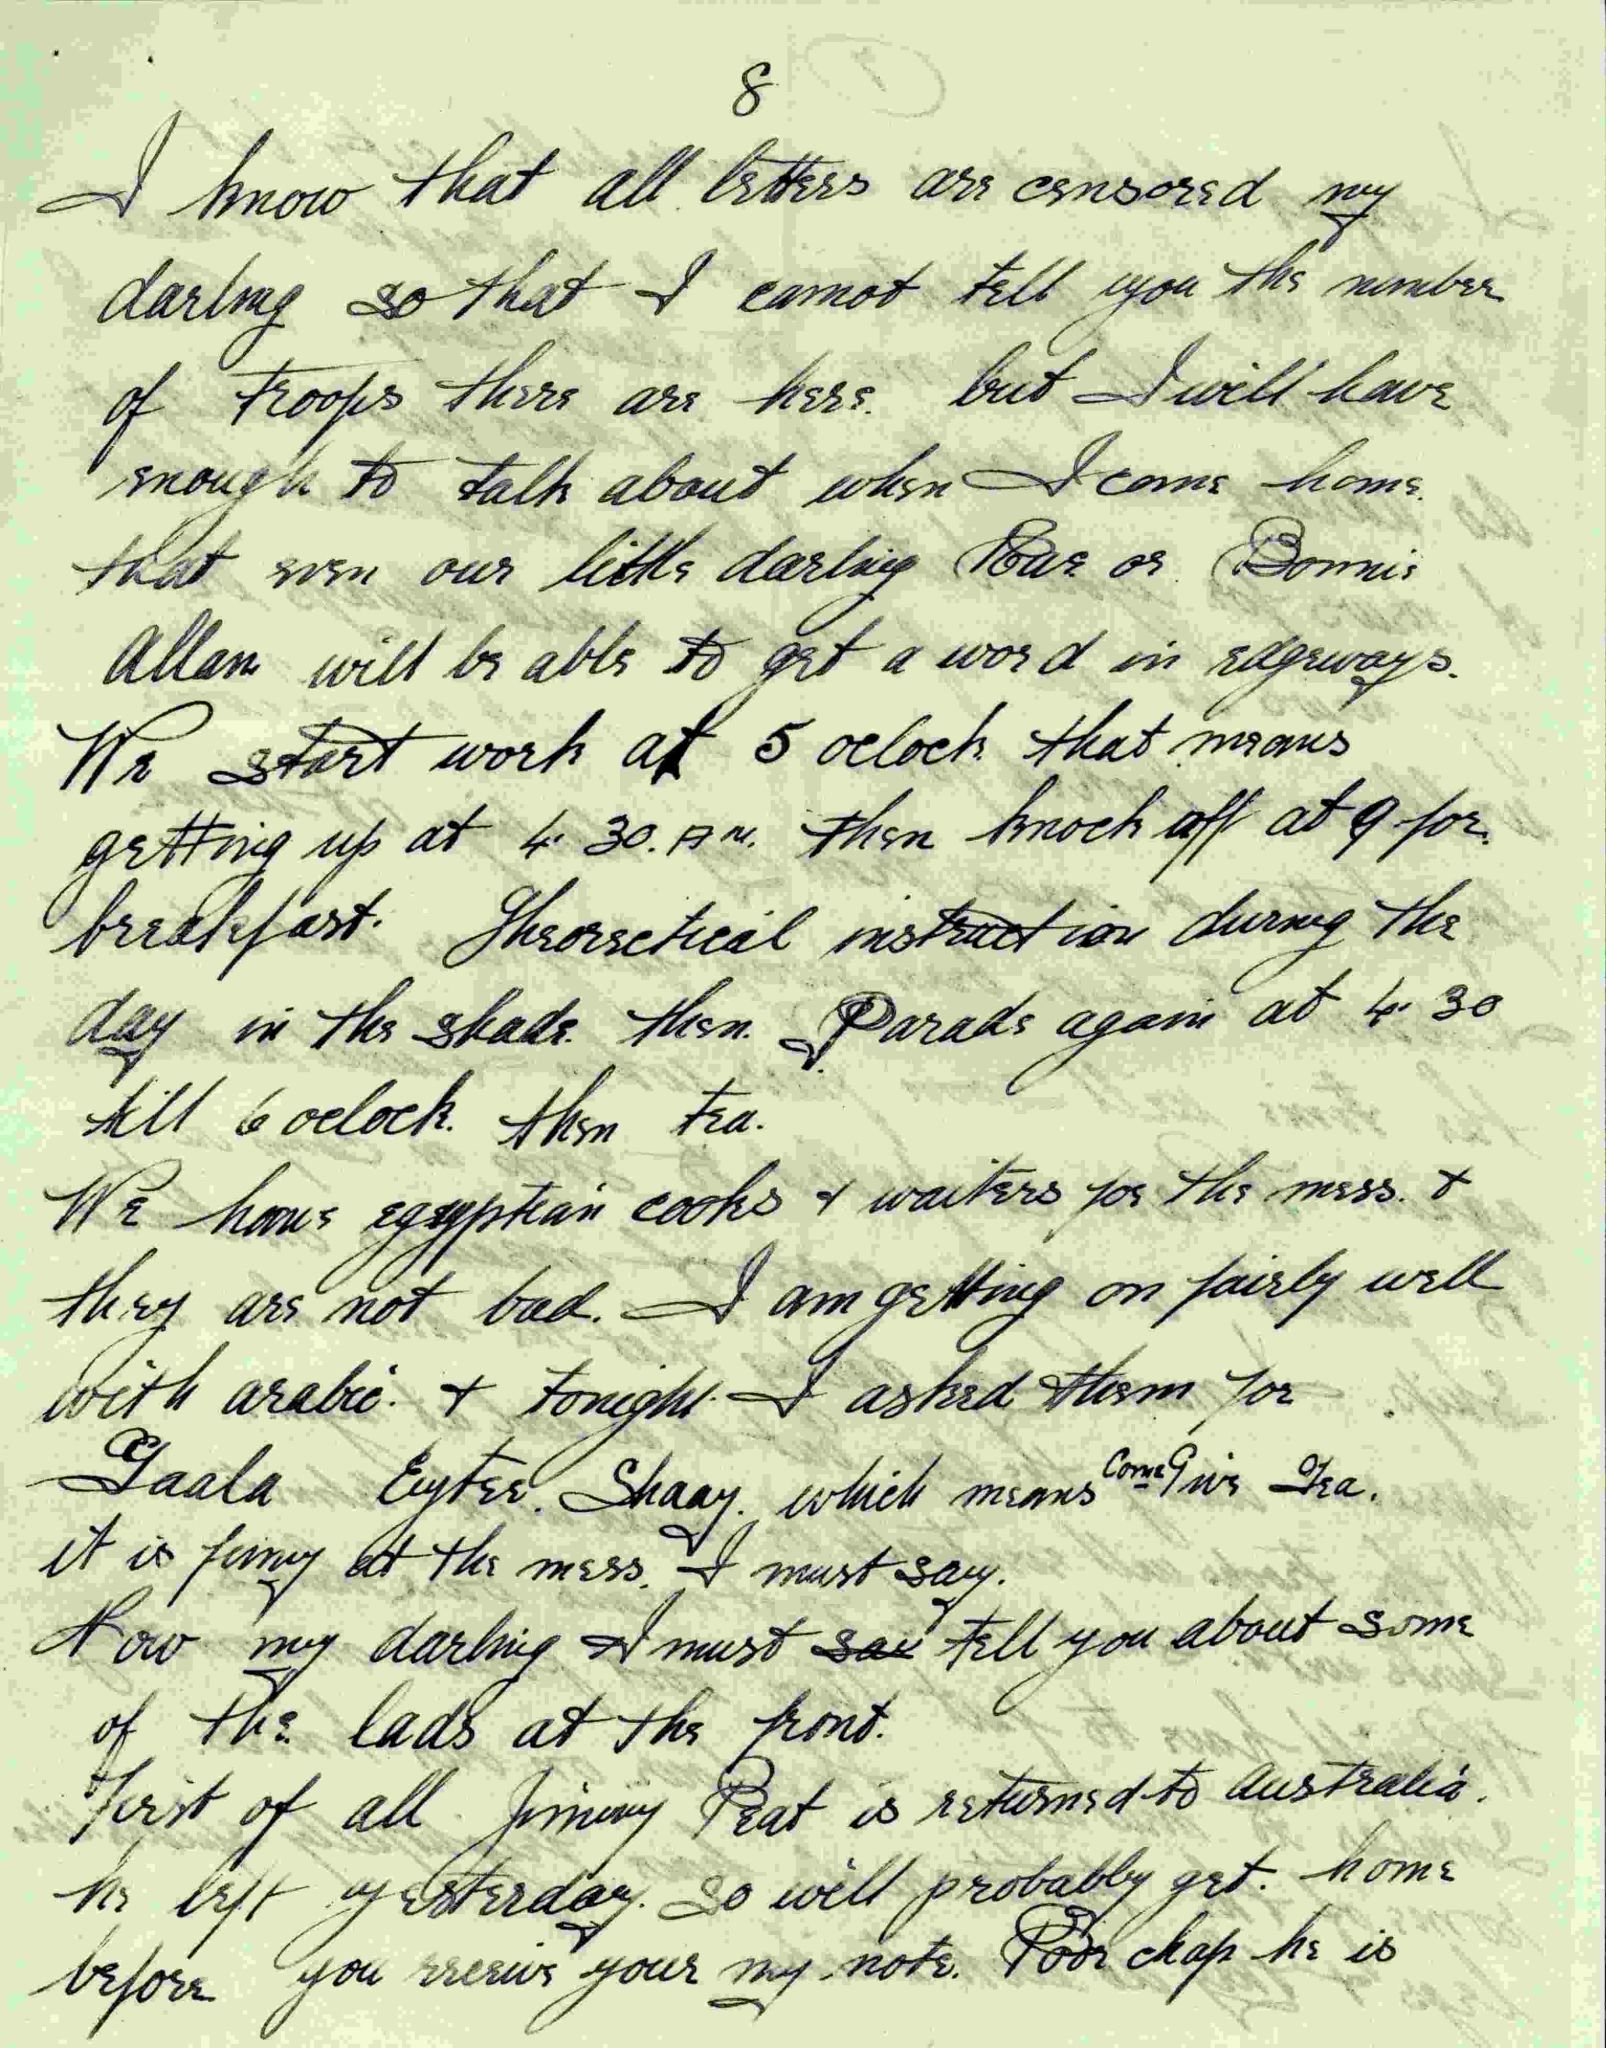 8
I know that all letters are censored my
darling so that I cannot tell you the number
of troops there are here. but I will have
enough to talk about when I come home.
that even our little darling or Bonnie
Allan will be able to get a word in edgeways.
We start work at 5 oclock that means
getting up at 4.30. AM. then knock off at 9 for
breakfast. Theorectical instruction during the
day in the shade. then. Parade again at 4.30
till 6 oclock. then tea.
We have egyptian cooks & waiters for the mess. &
they are not bad. I am getting on fairly well
with arabic. & tonight I asked them for
Gaala Eytee. Shaay. which means Come Give Tea.
it is funny at the mess. I must say.
Now my darling I must say tell you about some
of the lads at the front.
First of all Jimmy Peat is returned to Australia.
he left yesterday. so will probably get. home
before you receive your my note. Poor chap he is